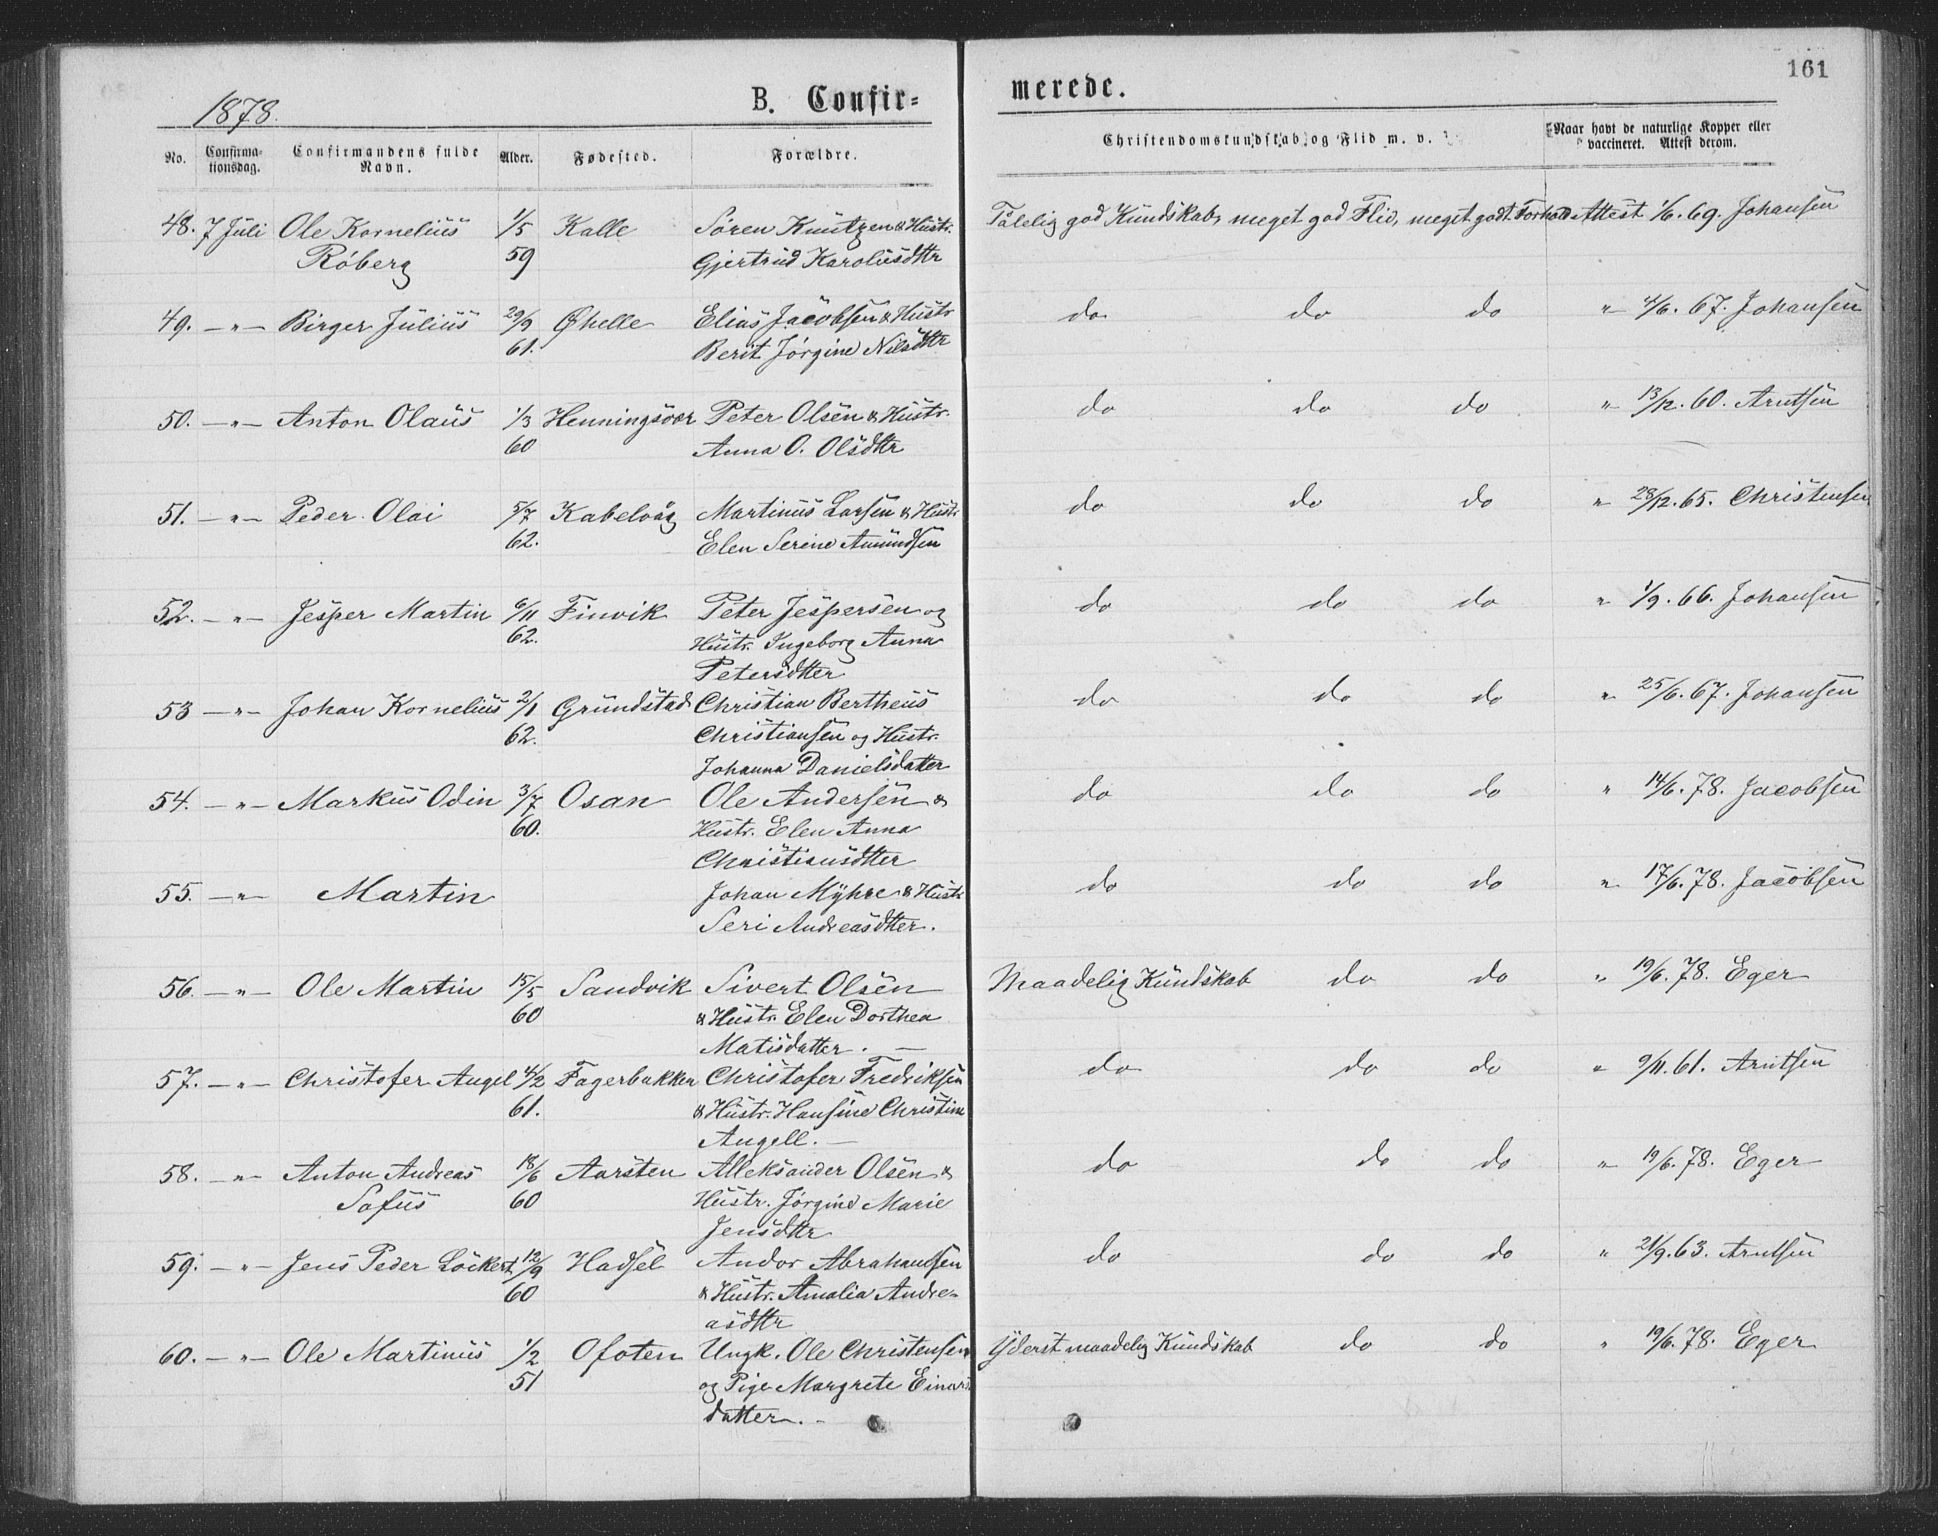 161
1878.
B. Confir-
merede.
No. Confirma-tionsdag. Confirmandens fulde Navn. Alder. Fødested. Forældre. Christendomskundskab og Flid m. v. Naar havt de naturlige Kopper eller vaccineret. Attest derom.
48. 7 Juli Ole Kornelius 1/5 Kalle Sören Knutzen & Hustr. Tålelig god Kundskab, meget god Flid, meget godt Forhold Attest 1/6. 69. Johansen
Röberg 59 Gjertrud Karolusdttr
49. -„- Birger Julius 29/9 Øhelle Elias Jacobsen & Hustr do do do „ 4/6. 67. Johansen
61. Berit Jörgine Nilsdttr
50. -„- Anton Olaus 1/3 Henningsvær Peter Olsen & Hustr. do do do „ 13/12. 60. Arntsen
60 Anna O. Olsdttr
51. -„- Peder Olai 5/7 Kabelvåg Martinus Larsen & Hustr. do do do „ 28/12. 65. Christensen
62. Elen Serine Amundsen
52. -„- Jesper Martin 6/11 Finvik Peter Jespersen og do do do „ 1/9. 66. Johansen
62. Hustr. Ingeborg Anna
Petersdtter
53 -„- Johan Kornelius 2/1 Grundstad Christian Bertheus do do do „ 25/6. 67. Johansen
62. Christiansen og Hustr.
Johanna Danielsdatter
54. -„- Markus Odin 3/7 Osan Ole Andersen & do do do „ 14/6. 78. Jacobsen
60. Hustr. Elen Anna
Christiansdtter
55. -„- Martin Johan Myhre & Hustr do do do „ 17/6. 78. Jacobsen
Seri Andreasdtter.
56. -„- Ole Martin 15/5 Sandvik Sivert Olsen Maadelig Kundskab do do „ 19/6. 78. Eger
60 & Hustr. Elen Dorthea
Matisdatter. -
57. -„- Christofer Angel 4/2 Fagerbakken Christofer Fredriksen do do do „ 9/11. 61. Arntsen
61. & Hustr. Hansine Christine
Angell. -
58. -„- Anton Andreas 18/6 Aarsten Alleksander Olsen & do do do „ 19/6. 78. Eger
Sofus 60 Hustr. Jörgine Marie
Jensdttr
59. -„- Jens Peder Löckert 12/9 Hadsel Andor Abrahamsen do do do „ 21/9. 63. Arntsen
60 & Hustr. Amalia Andre-
asdttr
60. -„- Ole Martinus 1/2 Ofoten Ungk. Ole Christensen Yderst maadelig Kundskab do do „ 19/6. 78. Eger
51 og Pige Margrete Einars
datter. -